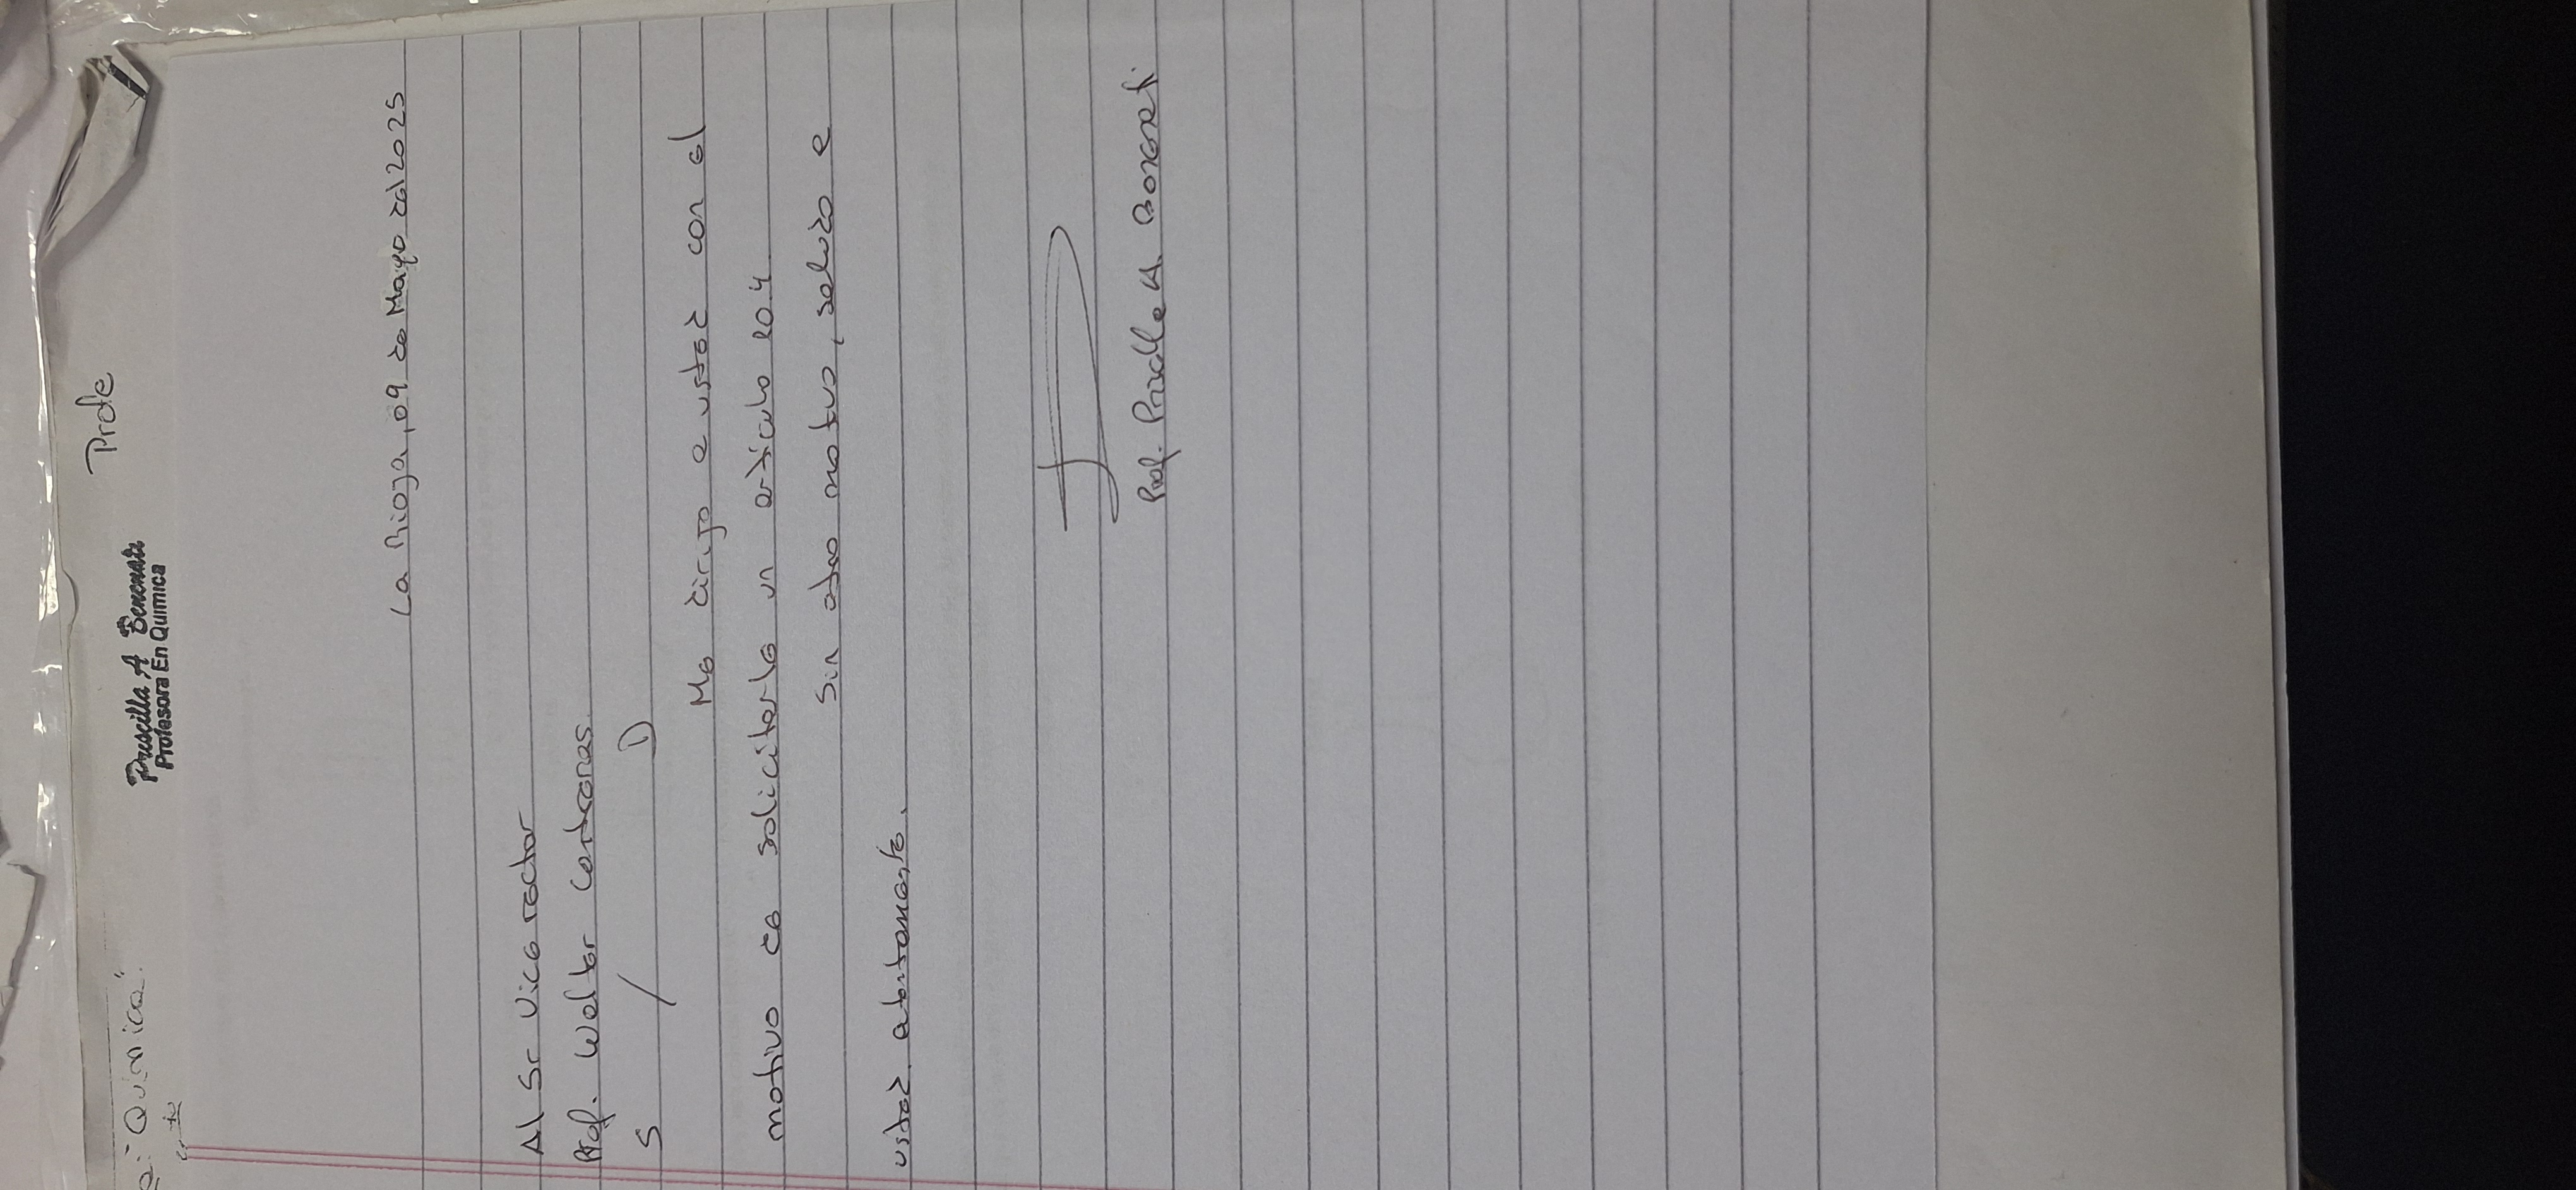 Química".
Profe
Priscilla A Benenati
Profesora En Química
La Rioja, 09 de Mayo del 2025
Al Sr Vice rector
Prof. Walter Contreras.
S / D
Me dirijo a usted con el
motivo de solicitarle un artículo 20.4
Sin otro motivo, saludo a
usted atentamente.
Prof. Priscilla A. Benenati